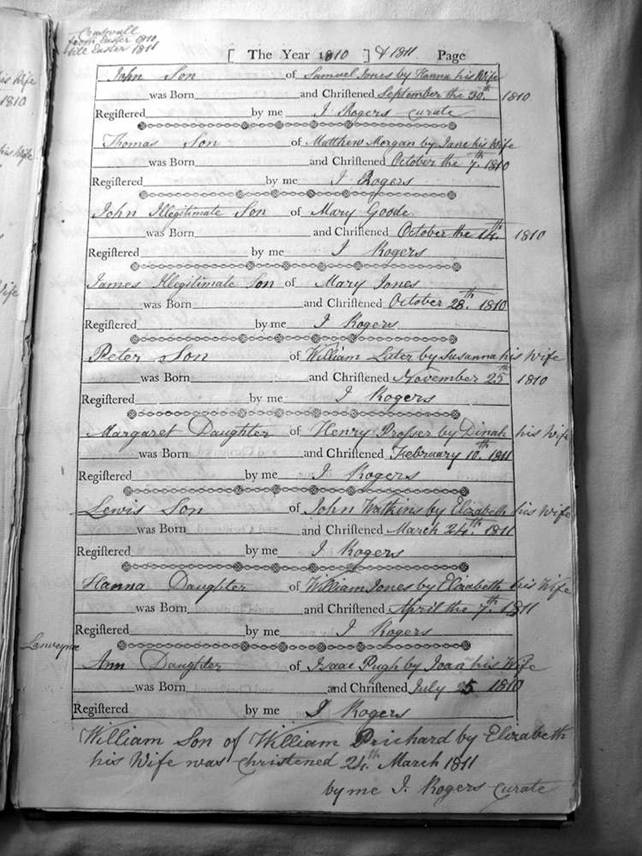 from Easter 1810
till Easter 1811
[ The Year 1810 ] & 1811 Page
John Son of Samuel Jones by Hanna his Wife
was Born and Chriſtened September the 30.th 1810
Regiſtered by me J Rogers curate
Thomas Son of Matthew Morgan by Jane his Wife
was Born and Chriſtened October the 7.th 1810
Regiſtered by me J Rogers
John Illegitimate Son of Mary Goode
was Born and Chriſtened October the 14.th 1810
Regiſtered by me J Rogers
James Illegitimate Son of Mary Jones
was Born and Chriſtened October 28.th 1810
Regiſtered by me J Rogers
Peter Son of William by Susanna his Wife
was Born and Chriſtened November 25th 1810
Regiſtered by me J Rogers
Margaret Daughter of Henry Prosser by Dinah his Wife
was Born and Chriſtened February 10.th 1811
Regiſtered by me J Rogers
Lewis Son of John Watkins by Elizabeth his Wife
was Born and Chriſtened March 24.th 1811
Regiſtered by me J Rogers
Hanna Daughter of William Jones by Elizabeth his Wife
was Born and Chriſtened April the 7th 1811
Regiſtered by me J Rogers
Ann Daughter of Isaac Pugh by Joan his Wife
was Born and Chriſtened July 25 1810
Regiſtered by me J Rogers
William Son of William Prichard by Elizabeth
his Wife was christened 24.th March 1811
by me J. Rogers curate
his Wife
1810
his Wife
Wife